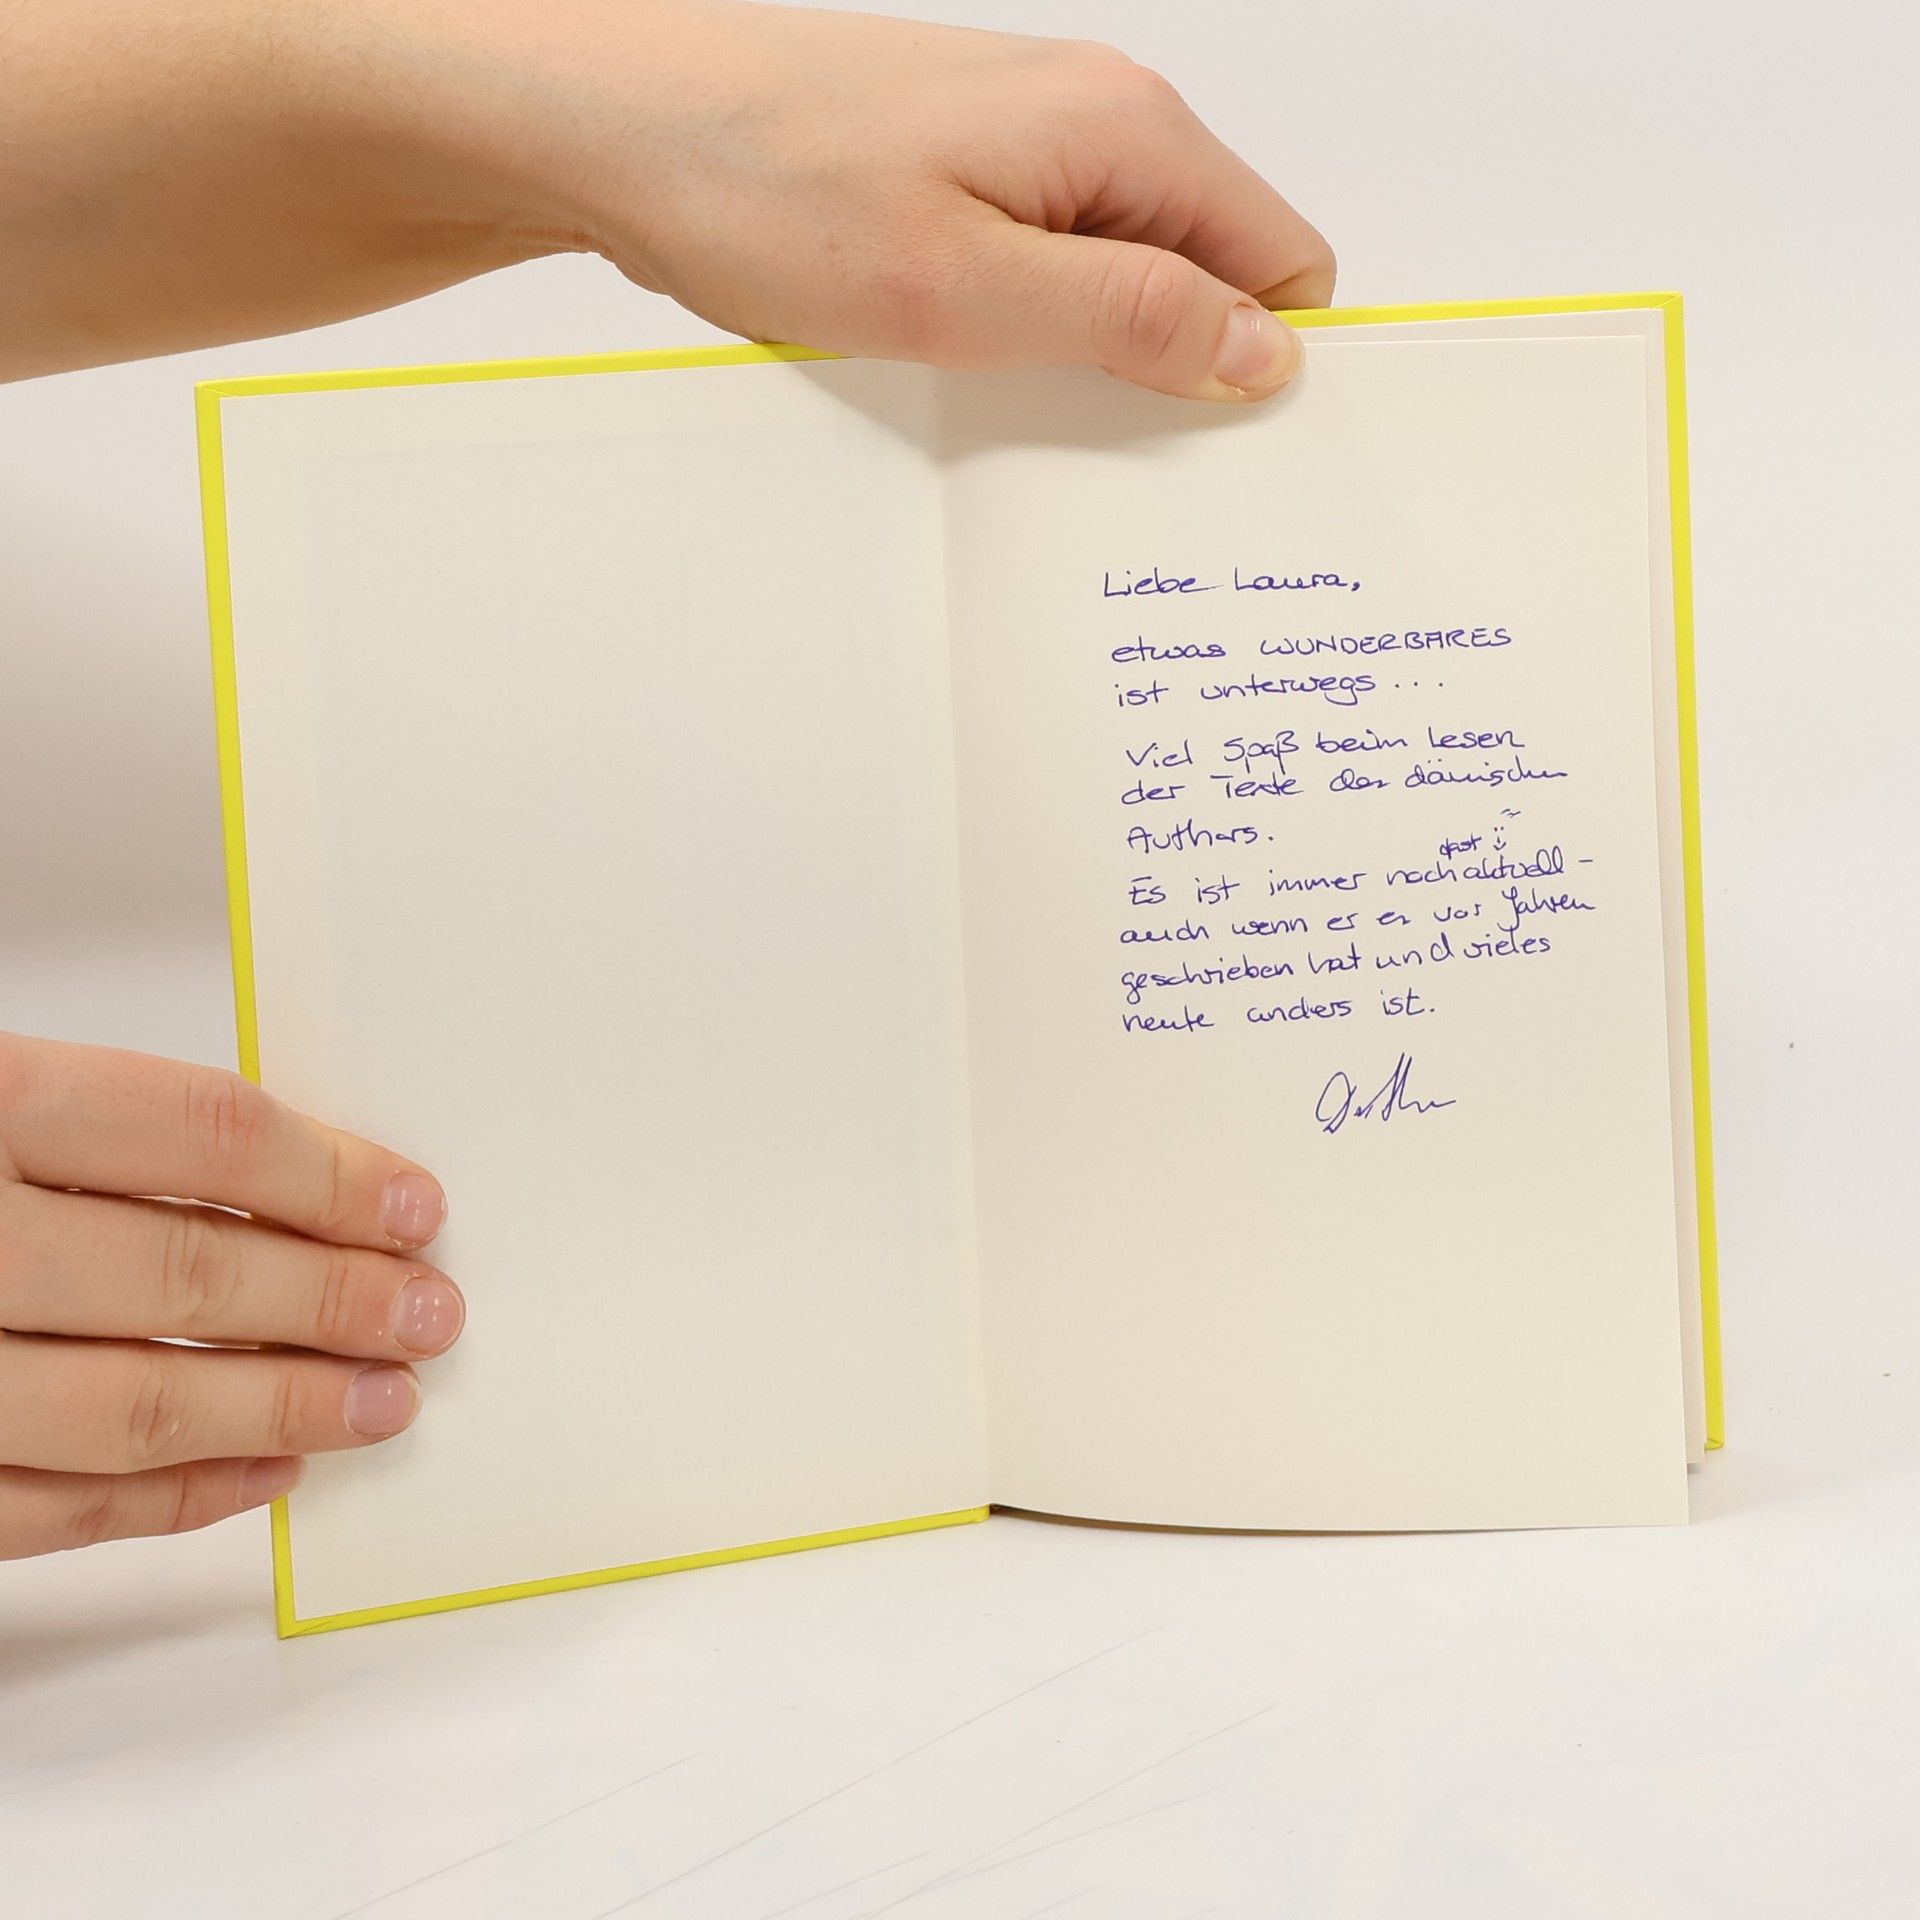 Liebe Laura,
etwas WUNDERBARES
ist unterwegs...
Viel Spaß beim Lesen
der Texte des dänischen
Authors.
fast :)
Es ist immer noch aktuell –
auch wenn er es vor Jahren
geschrieben hat und vieles
heute anders ist.